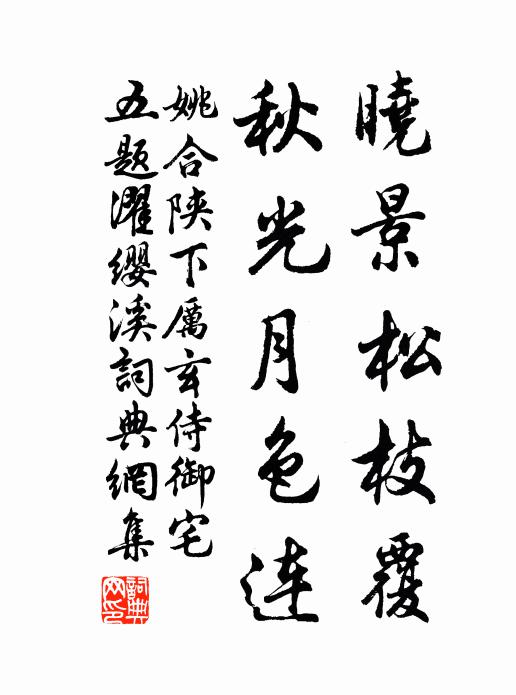 曉景松枝覆
秋光月色連
姚合陝下厲玄侍御宅
五题濯纓溪詞典網集
詞典网印